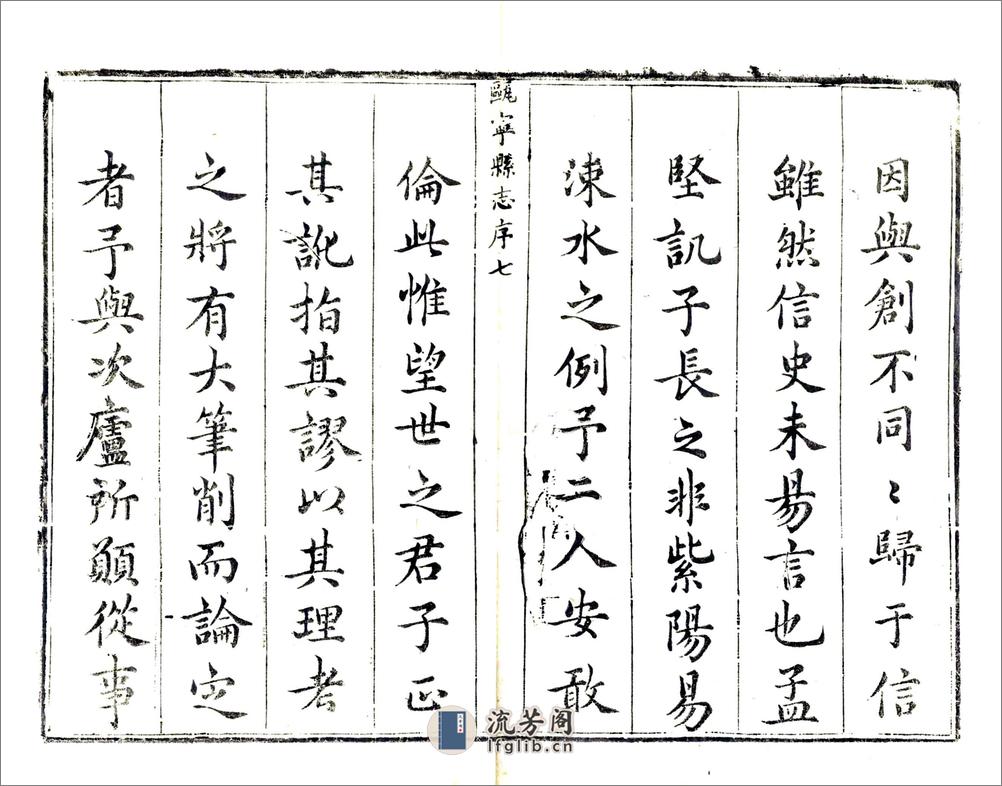 因與創不同〻歸于信
雖然信史未易言也孟
堅訊子長之非紫陽易
涑水之例予二人安敢
甌寧縣志序七
倫此惟望世之君子正
其訛指其謬以其理考
之將有大筆削而論定
者予與次廬所願從事
流芳阁
lfglib.cn